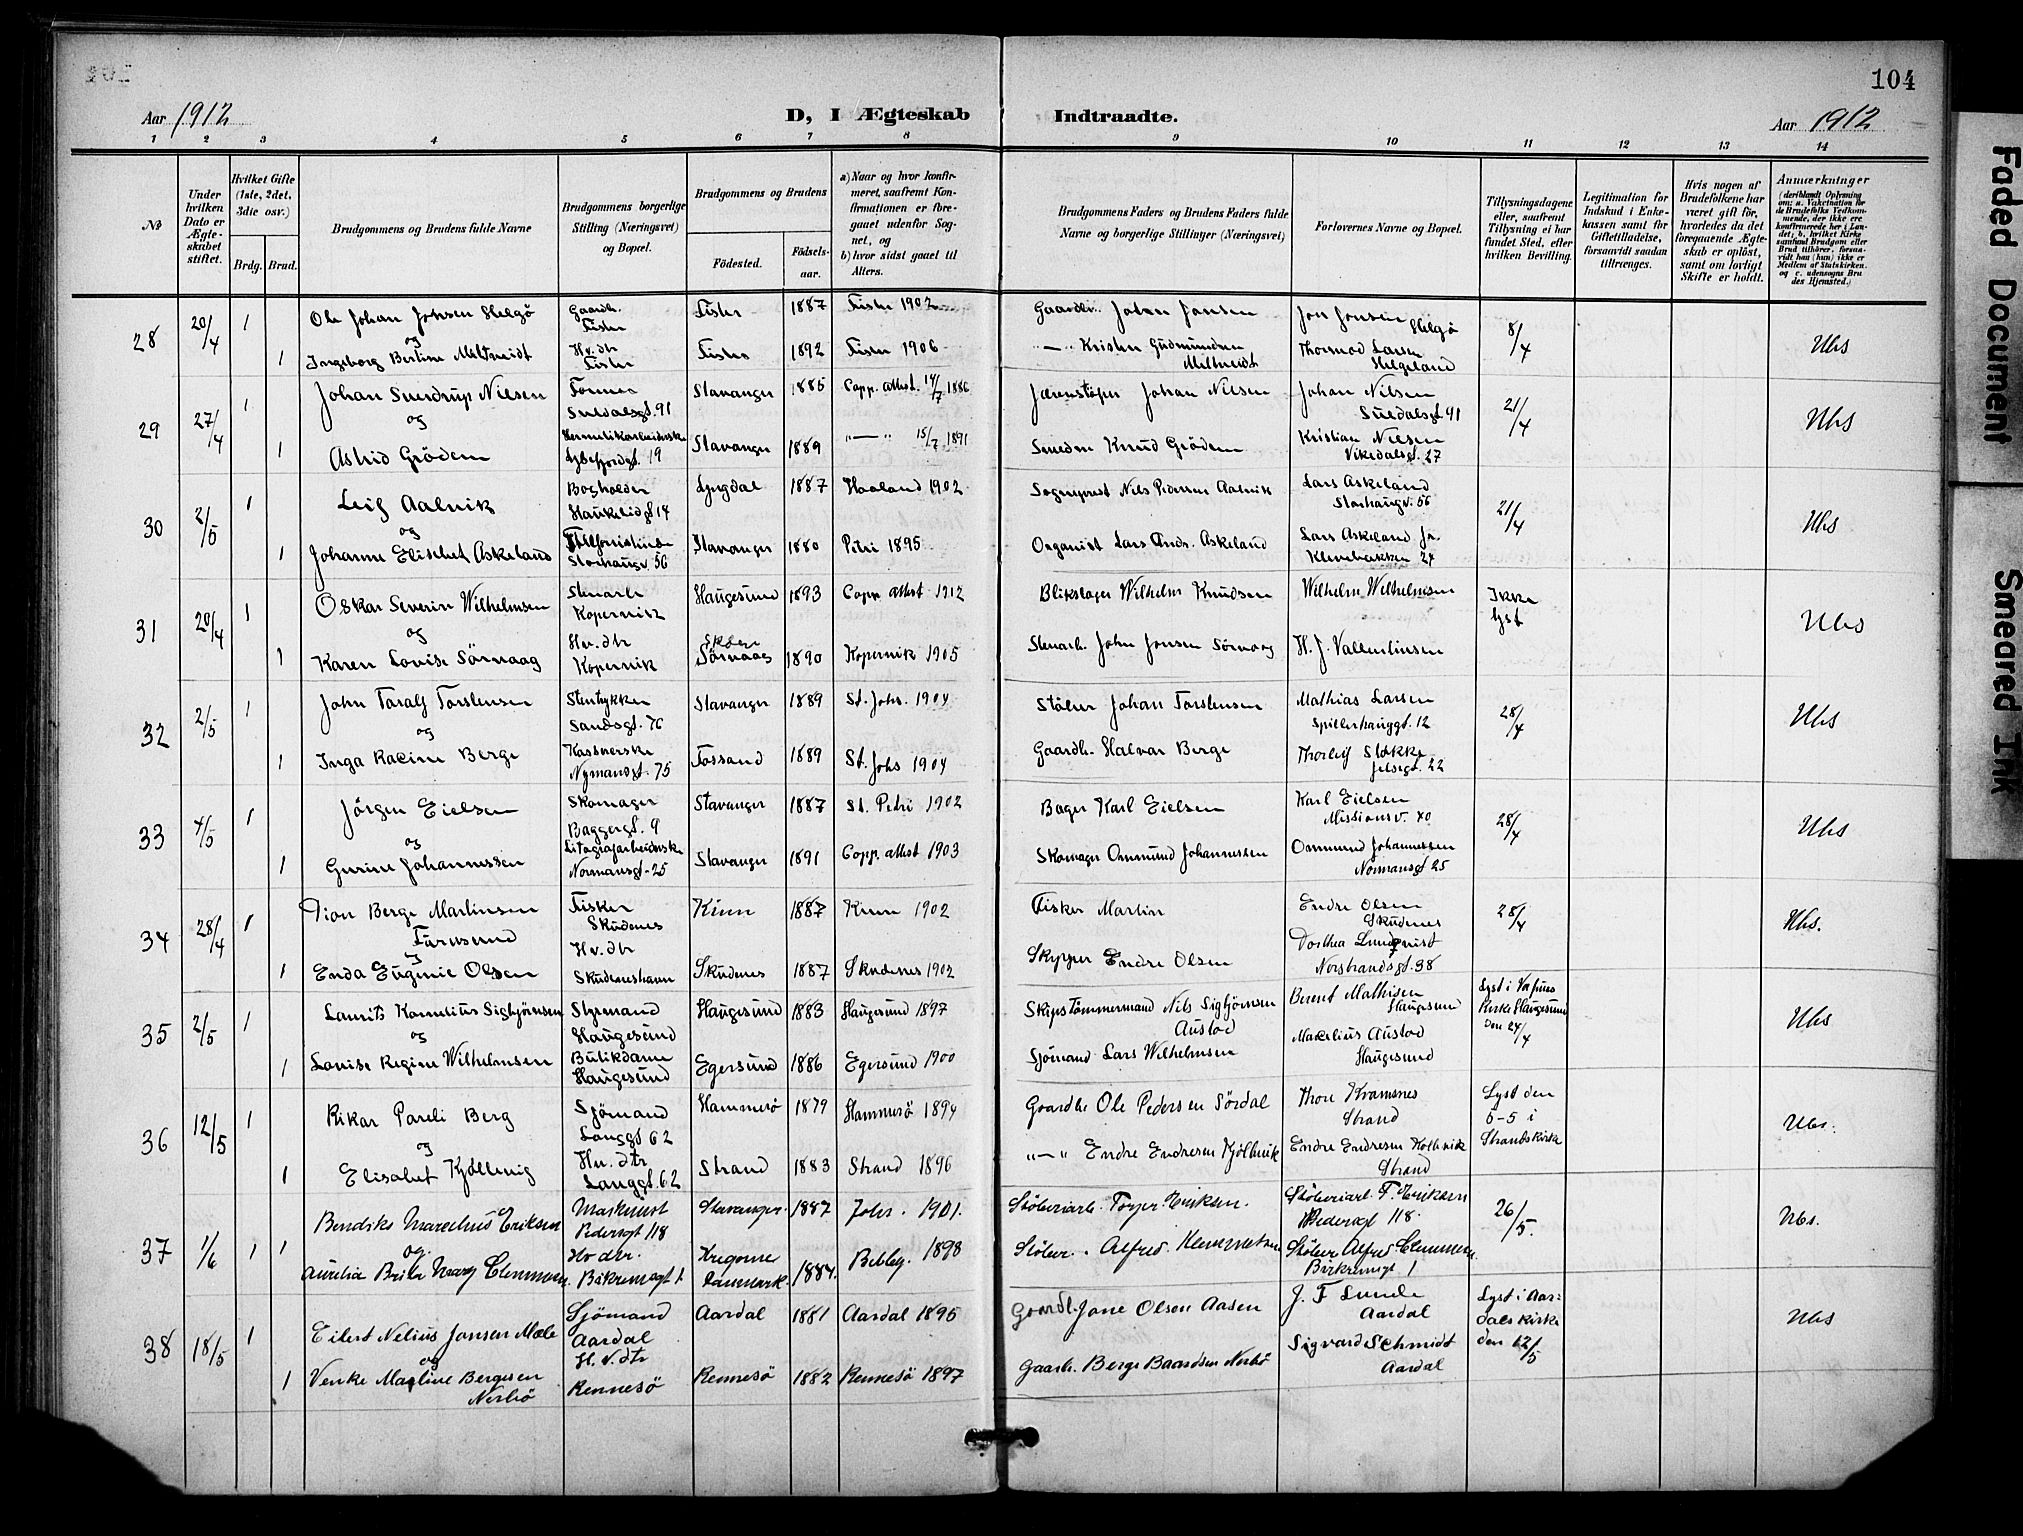 104
Aar 1912
D, I Ægteskab Indtraadte.
Aar 1912
1 2 3 4 5 6 7 8 9 10 11 12 13 14
№
Under hvilken Dato er Ægteskabet stiftet.
Hvilket Gifte (1ste, 2det, 3die osv.)
Brdg. Brud.
Brudgommens og Brudens fulde Navne
Brudgommens borgerlige Stilling (Næringsvei) og Bopæl.
Brudgommens og Brudens
Fødested. Fødselsaar.
a) Naar og hvor konfirmeret, saafremt Konfirmationen er foregaaet udenfor Sognet, og
b) hvor sidst gaaet til Alters.
Brudgommens Faders og Brudens Faders fulde Navne og borgerlige Stillinger (Næringsvei)
Forlovernes Navne og Bopæl.
Tillysningsdagene eller, saafremt Tillysning ei har fundet Sted, efter hvilken Bevilling.
Legitimation for Indskud i Enkekassen samt for Giftetilladelse, forsaavidt saadan tiltrænges.
Hvis nogen af Brudefolkene har været gift før, hvorledes da det foregaaende Ægteskab er opløst, samt om lovligt Skifte er holdt.
Anmærkninger
(deriblandt Oplysning om: a. Vakcination for de Brudefolks Vedkommende, der ikke ere konfirmerede her i Landet; b. hvilket Kirkesamfund Brudgom eller Brud tilhører, forsaavidt han (hun) ikke er Medlem af Statskirken. og c. udensogns Brudes Hjemsted.)
28 20/4 1 Ole Johan Jonsen Helgø Gaardbr. Fister Fister 1887 Fister 1902 Gaardbr. Johan Jonsen Jon Jonsen Helgø 8/4 Ubs
og
1 Ingeborg Bertine Mæltveidt Hv. dtr Fister Fister 1892 Fister 1906 Kristen Gudmundsen Thormod Larsen Helgeland
29 27/4 1 Johan Sverdrup Nilsen Former Suldalsgt. 91 Stavanger 1885 Copp. attest. 14/7 1886 Johan Nilsen Johan Nilsen Suldalsgt 91 21/4 Ubs
og
1 Astrid Grødem Hermetikarbeiderske Lysefjordgt. 19 Stavanger 1889 15/7 1891 Smeden Knud Grødem Kristian Nilsen Vikedalsgt. 27
30 2/5 1 Leif Aalvik Bogholder Haukeligt 14 Lyngdal 1887 Haaland 1902 Sogneprest Nils Pedersen Aalvik Lars Askeland Storhaugv. 56 21/4 Ubs
og
1 Johanne Elisabet Askeland Storhaugv. 56 Stavanger 1880 Petri 1895 Organist Lars Andr. Askeland Lars Askeland Jr. Klevebakken 24
31 20/4 1 Oskar Severin Wilhelmsen Stuearb. Kopervik Haugesund 1893 Copp. attest 1912 Blikslager Wilhelm Knudsen Wilhelm Wilhelmsen Ikke lyst Ubs
og
1 Karen Lovise Sørnaag Hv. dtr Kopervik Skåre Sørnaag 1890 Kopervik 1905 Stenarb. John Jonsen Sørnaag H. J. Vallentinsen
32 2/5 1 John Taralf Torstensen Stentrykker Sandsgt. 76 Stavanger 1889 St. Johs. 1904 Støber Johan Torstensen Mathias Larsen Spilderhauggt. 12 28/4 Ubs
og
1 Inga Racine Berge Kassererske Nymansgt. 75 Fossand 1889 St. Johs 1904 Gaardb. Halvar Berge Thorleif Stokke Jelsegt. 22
33 4/5 1 Jörgen Eielsen Skomager Baggergt. 9 Stavanger 1887 St. Petri 1902 Bager Karl Eielsen Karl Eielsen Missionsv. 40 28/4 Ubs
og
1 Gurine Johannessen Litografarbeiderske Normansgt. 25 Stavanger 1891 Copp. attest 1903 Skomager Ommund Johannessen Ommund Johannessen Normansgt 25
34 28/4 1 Berge Martinsen Fisker Skudenes Kinn 1887 Kinn 1902 Fisker Martin Endre Olsen Skudenes 28/4 Ubs.
og
1 Enda Euginie Olsen Hv. dtr Skudeneshavn Skudenes 1887 Skudenes 1902 Skipper Endre Olsen Dorthea Lundqvist Norstrandsgt. 38
35 2/5 1 Laurits Kornelius Sigbjørnsen Styrmand Haugesund Haugesund 1883 Haugesund 1897 Skipstømmermand Nils Sigbjørnsen Austad Berent Mathisen Haugesund Lyst i Vor frues Kirke Haugesund den 24/4 Ubs
og
1 Lovise Regine Wilhelmsen Butikdame Haugesund Egersund 1886 Egersund 1900 Sjømand Lars Wilhelmsen Makelius Austad Haugesund
36 12/5 1 Rikar Pareli Berg Sjømand Langgt 62 Hammerø 1879 Hammerø 1894 Gaardbr Ole Pedersen Sørdal Thore Kramsnes Strand Lyst den 5-5 i Strandskirke Ubs.
og
1 Elisabet Kjøllevig Hv. dtr Langgt. 62 Strand 1883 Strand 1896 Endre Endresen Kjøllevik Endre Endresen Strand
37 1/6 1 Bendiks Marselius Eriksen Maskinist Pedersgt 118 Stavanger 1887 Johs. 1901. Støberiarb. Torger Eriksen. Støberiarb. T. Eriksen Pedersgt 118. 26/5. Ubs.
og.
1 Aurelia Brita Mary Clemmensen Hv dtr. Birkremsgt 1. Danmark 1884. 1898 Støber. Alfred Clemmensen Støber Alfred Clemmensen. Birkremsgt 1
38 18/5 1 Eilert Nelius Jansen Mæle Sjømand Aardal Aardal 1881 Aardal 1895 Gaardb. Jone Olsen Aasen J. F Lunde Aardal Lyst i Aardals kirke den 12/5 Ubs
og
1 Venke Martine Bergesen Nerbø H. v. dtr Rennesø Rennesø 1882 Rennesø 1897 Gaarb. Berge Baardsen Nerbø Sigvard Schmidt Aardal
Faded Document
Smeared Ink